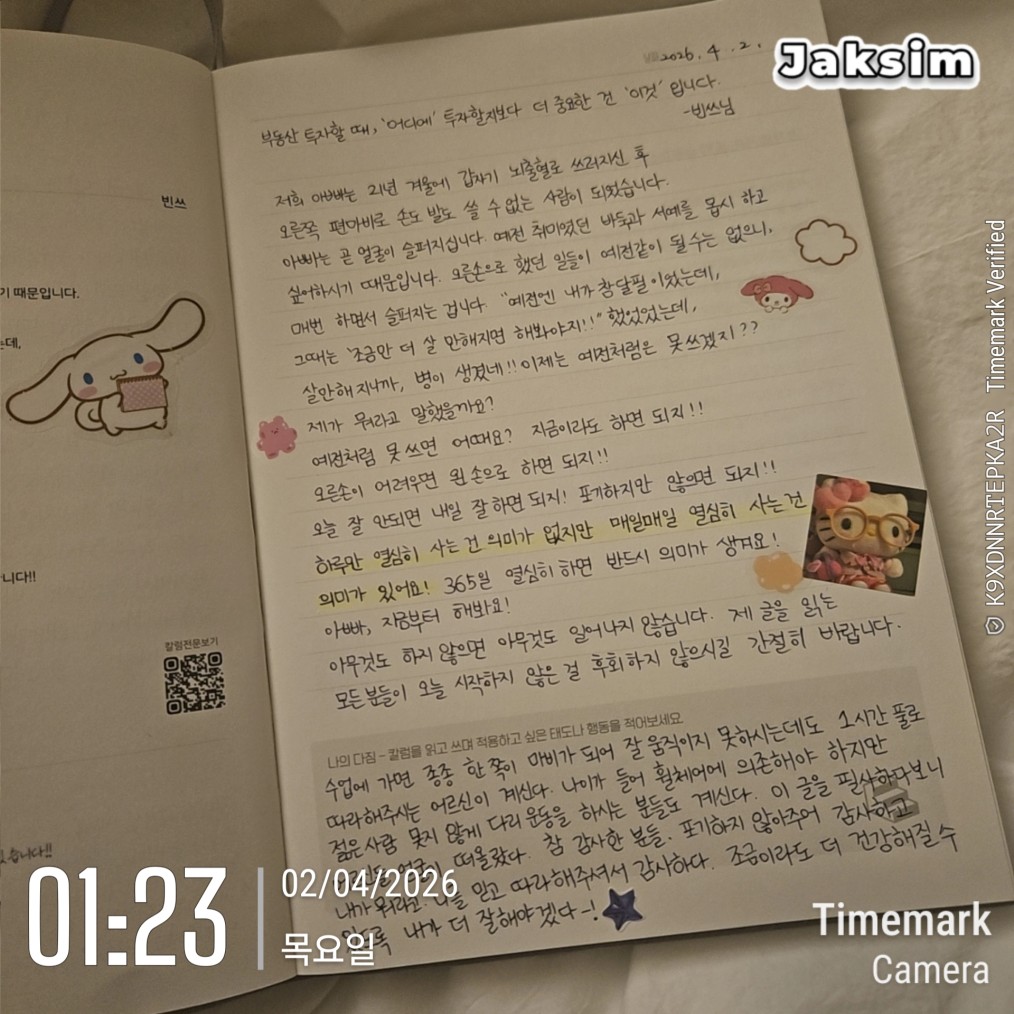 Jaksim
2026. 4. 2.
부동산 투자할 때, '어디에' 투자할지보다 더 중요한 건 '이것' 입니다.
-빈쓰님
저희 아빠는 21년 겨울에 갑자기 뇌출혈로 쓰러지신 후
오른쪽 편마비로 손도 발도 쓸 수 없는 사람이 되었습니다.
아빠는 곧 얼굴이 슬퍼지십니다. 예전 취미였던 바둑과 서예를 몹시 하고
싶어하시기 때문입니다. 오른손으로 했던 일들이 예전같이 될 수는 없으니,
매번 하면서 슬퍼지는 겁니다. "예전엔 내가 참 달필이었는데,
그때는 '조금만 더 살 만해지면 해봐야지!!" 했었었는데,
살만해지니까, 병이 생겼네!! 이제는 예전처럼은 못쓰겠지??
제가 뭐라고 말했을까요?
예전처럼 못 쓰면 어때요? 지금이라도 하면 되지!!
오른손이 어려우면 왼손으로 하면 되지!!
오늘 잘 안되면 내일 잘하면 되지! 포기하지만 않으면 되지!!
하루만 열심히 사는 건 의미가 없지만 매일매일 열심히 사는 건
의미가 있어요! 365일 열심히 하면 반드시 의미가 생겨요!
아빠, 지금부터 해봐요!
아무것도 하지 않으면 아무것도 일어나지 않습니다. 제 글을 읽는
모든 분들이 오늘 시작하지 않은 걸 후회하지 않으시길 간절히 바랍니다.
나의 다짐 – 칼럼을 읽고 쓰며 적용하고 싶은 태도나 행동을 적어보세요.
수업에 가면 종종 한 쪽이 마비가 되어 잘 움직이지 못하시는데도 1시간 풀로
따라해주시는 어르신이 계신다. 나이가 들어 휠체어에 의존해야 하지만
젊은사람 못지 않게 다리 운동을 하시는 분들도 계신다. 이 글을 필사하다보니
얼굴이 떠올랐다. 참 감사한 분들. 포기하지 않아주어 감사하고
내가 뭐라고 나를 믿고 따라해주셔서 감사하다. 조금이라도 더 건강해질 수
있도록 내가 더 잘해야겠다-!
빈쓰
기 때문입니다.
는데,
니다!!
칼럼전문보기
습니다!!
01:23
02/04/2026
목요일
Timemark
Camera
K9XDNNRTEPKA2R Timemark Verified